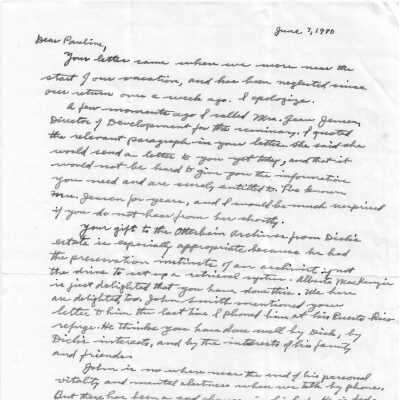 June 7, 1990
Dear Pauline,
Your letter came when we were near the
start of our vacation, and has been neglected since
our return over a week ago. I apologize.
A few moments ago I called Mrs. Jean Jensen,
Director of Development for the seminary. I quoted
the relevant paragraph in your letter. She said she
would send a letter to you yet today, and that it
would not be hard to give you the information
you need and are surely entitled to. I've known
Mrs. Jensen for years, and I would be much surprised
if you do not hear from her shortly.
Your gift to the Otterbein Archives from Dick's
estate is especially appropriate because he had
the preservation instincts of an archivist, if not
the drive to set up a retrieval system. Alberta MacKenzie
is just delighted that you have done this. We here
are delighted, too. John Smith mentioned your
letter to him the last time I phoned him at his Puerto Rico
refuge. He thinks you have done well by Dick, by
Dick's interests, and by the interests of his family
and friends.
John is no where near the end of his personal
vitality and mental alertness when we talk by phone.
But there has been a sad change in his